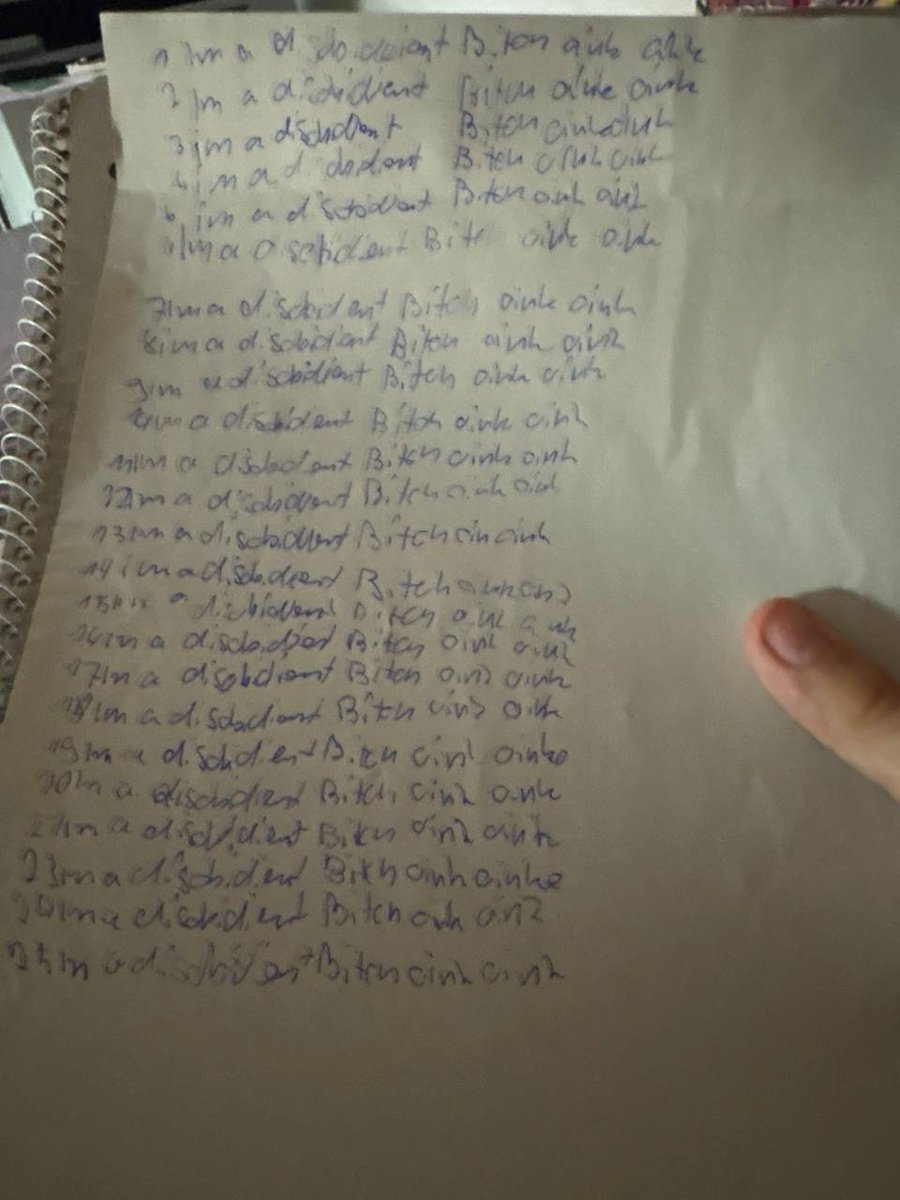 1 Im a disobideiant Bitch oink oink
2 Im a disobidient Bitch oinke oink
3 im a disobident Bitch oink oink
4 im a disobidient Bitch oink oink
im a disobidient Bitch oink oink
Im a disobidient Bitch oink oink
7 Im a disobident Bitch oinke oink
8 im a disobidient Bitch oink oink
9 im a disobidient Bitch oink oink
Im a disobident Bitch oinke oink
11 Im a disobident Bitch oink oink
12 im a disobidient Bitch oink oink
13 Im a disobidient Bitch oin oink
14 im a Bitch
15 a Bitch oink oink
im a Bitch oink oink
17 Im a disobidient Bitch oink oinke
18 Im a disobdient Bitch oink oink
19 Im a disobdient Bitch oink oinke
20 Im a disobident Bitch oink oink
21 Im a disobident Bitch oink oinke
23 im a disobident Bitch oink oinke
24 im a disobident Bitch oink oink
Im a disobident Bitch oink oink